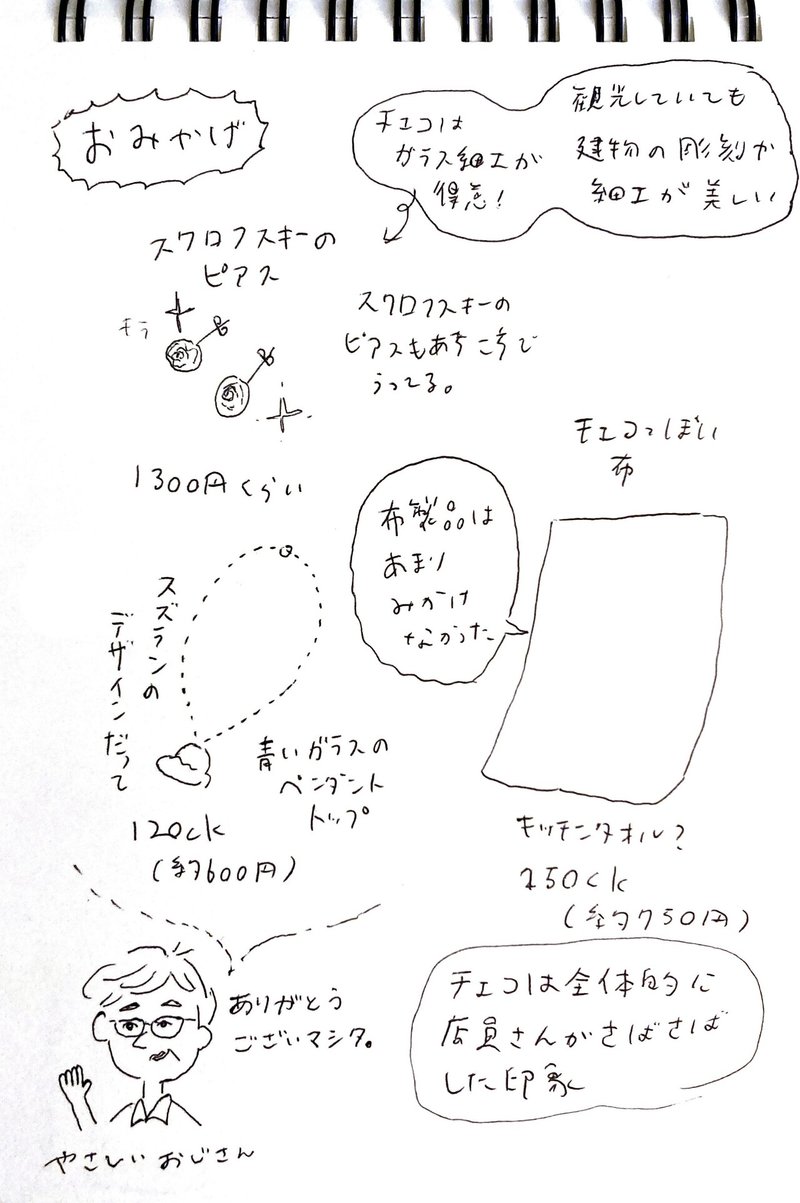 おみやげ
チェコは
ガラス細工が
得意!
観光していても
建物の彫刻や
細工が美しい
スワロフスキーの
ピアス
キラ
スワロフスキーの
ピアスもあちこちで
うってる。
1300円くらい
チェコっぽい
布
布製品は
あまり
みかけ
なかった
スズランの
デザインだって
青いガラスの
ペンダント
トップ
120ck
(約600円)
キッチンタオル?
150ck
(約750円)
ありがとう
ございマシタ。
やさしいおじさん
チェコは全体的に
店員さんがさばさば
した印象